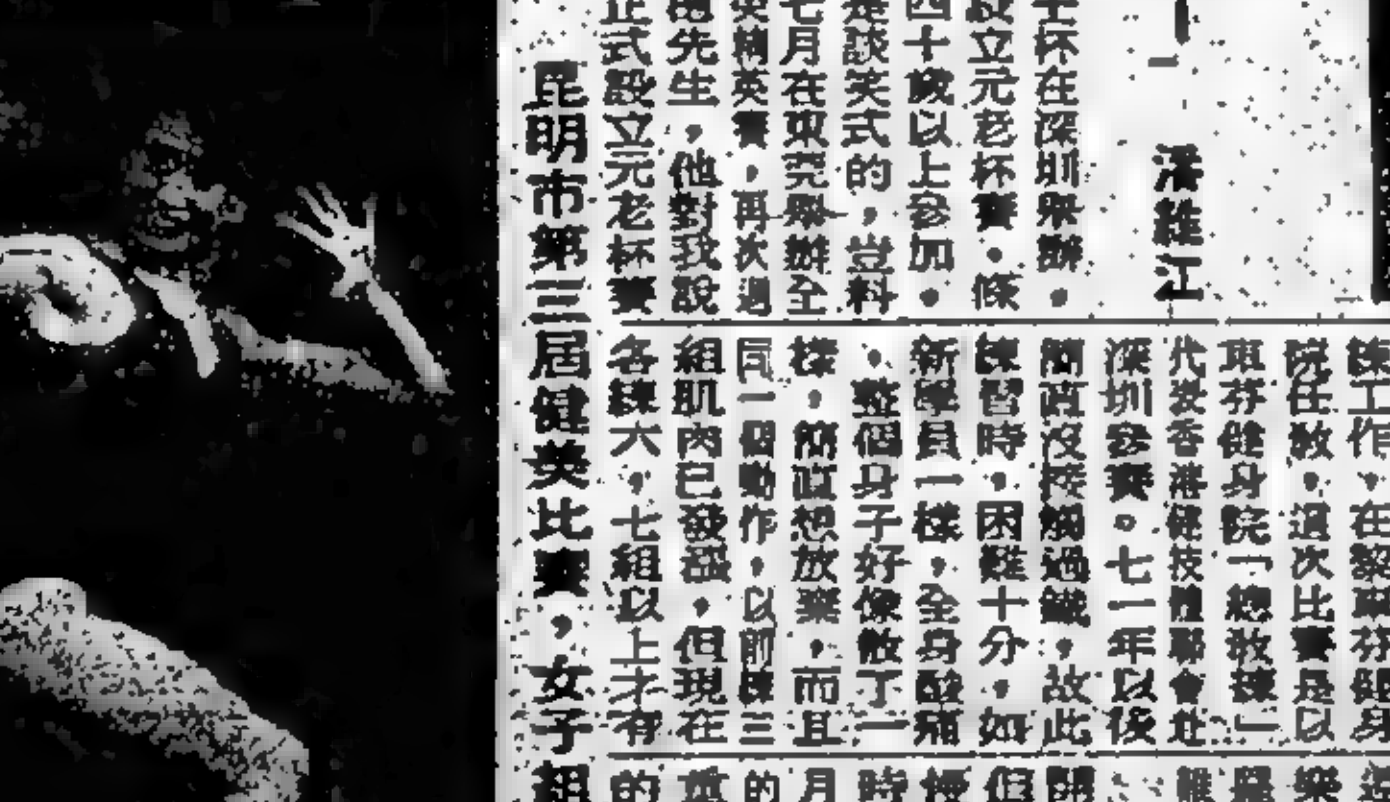 潘維江
杯在深圳舉辦。
設立元老杯賽。條
四十歲以上參加。
是談笑式的,豈料
七月在東莞舉辦全
精英賽,再次遇
先生,他對我說
正式設立元老杯賽
練工作,在黎東芬健身
院任教,這次比賽是以
東芬健身院「總教練」
代表香港健技體聯會赴
深圳參賽。七一年以後
簡直沒接觸過鐵,故此
練習時,困難十分,如
新學員一樣,全身酸痛
,整個身子好像散了一
樣,簡直想放棄,而且
同一個動作,以前練三
組肌肉已發,但現在
各練六,七組以上才有
開
但
時
月
的
的
昆明市第三屆健美比賽,女子組